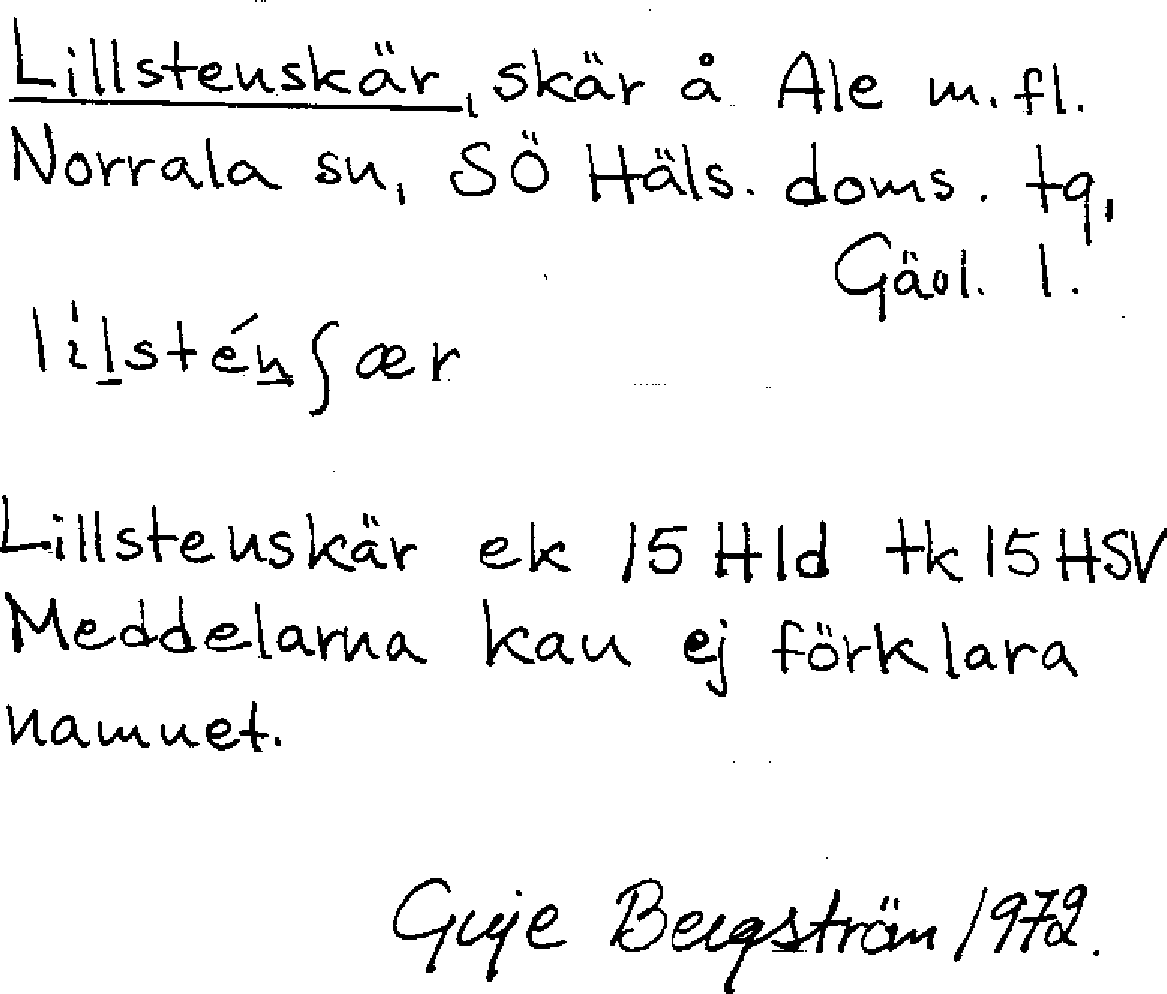 Lillstenskär, skär å Ale m.fl.
Norrala sn, SÖ Häls. doms. tq,
Gävl. l.
lílsténʃær
Lillstenskär ek 15 Hld tk 15 HSV
Meddelarna kan ej förklara
namnet.
Guje Bergström 1972.